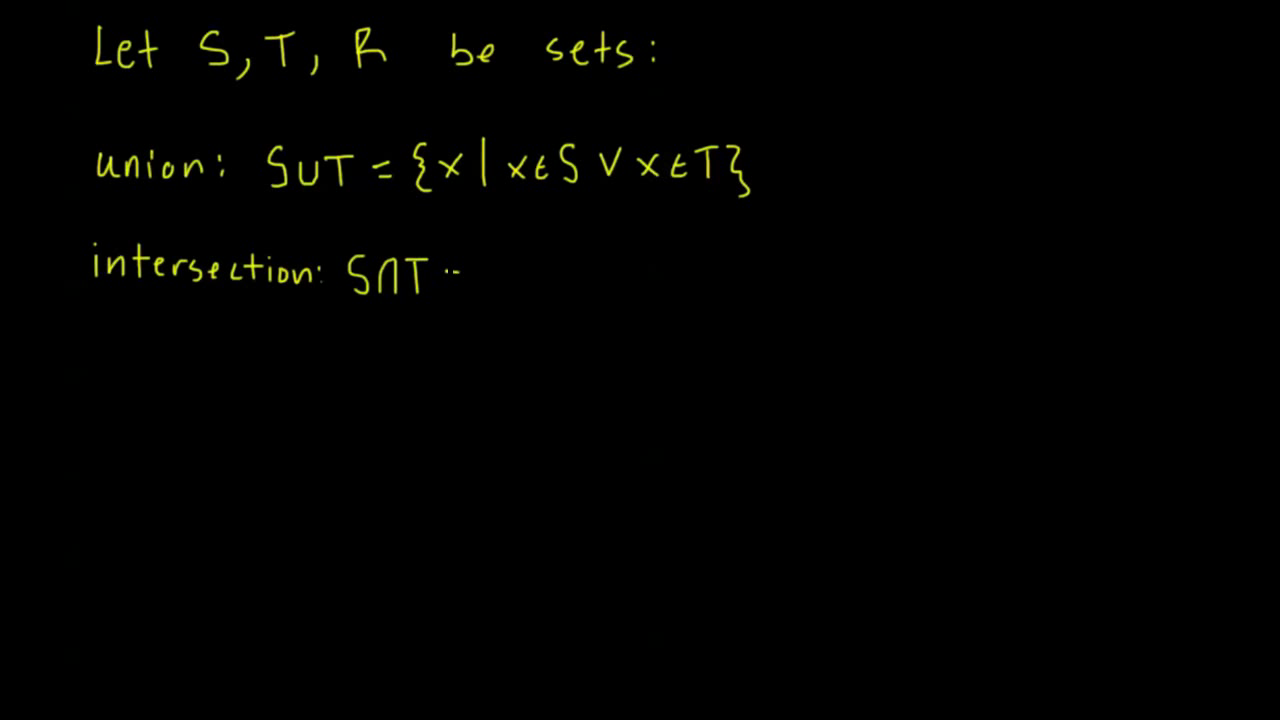 Let S, T, R be sets:
union: S∪T = {x | x∈S ∨ x∈T}
intersection: S∩T